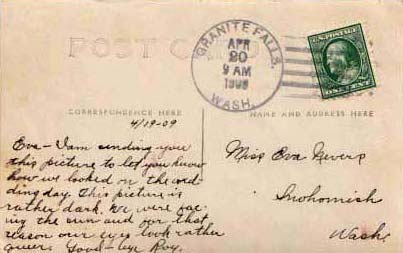 POST CARD
GRANITE FALLS.
APR
20
9 AM
WASH.
U.S. POSTAGE
ONE CENT
CORRESPONDENCE HERE
NAME AND ADDRESS HERE
4/19-09
Eva - I am sending you
this picture to let you know
how we looked on the wed-
ding day. This picture is
rather dark. We were fac-
ing the sun and for that
reason our eyes look rather
queer. Good-bye Roy.
Miss Eva
Snohomish
Wash.